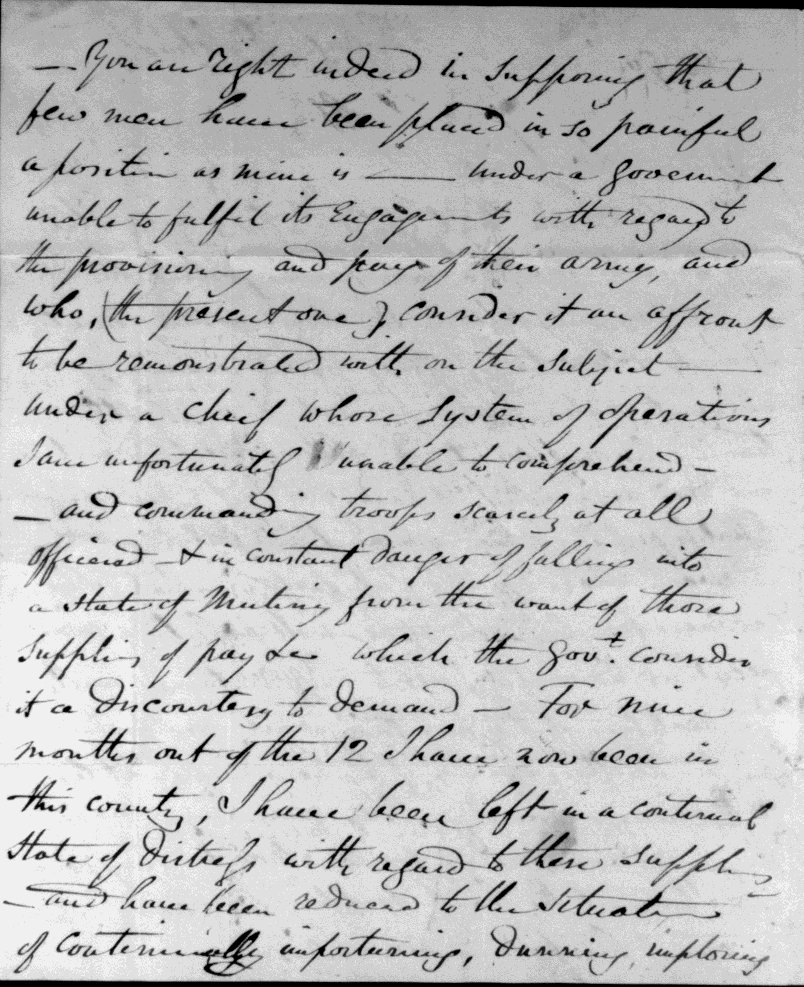 — You are right indeed in supposing that
few men have been placed in so painful
a position as mine is — under a government
unable to fulfil its Engagements with regard to
the provisioning and pay of their army, and
who, (the present one), consider it an affront
to be remonstrated with on the subject —
under a cheif whose system of operations
I am unfortunately unable to comprehend —
— and commanding troops scarcely at all
officered — & in constant danger of falling into
a state of Mutiny from the want of those
supplies of pay &c which the Govt. consider
it a discourtesy to demand — For nine
months out of the 12 I have now been in
this county, I have been left in a continual
state of distress with regard to these supplies
— and have been reduced to the situation
of continually importuning, dunning, imploring